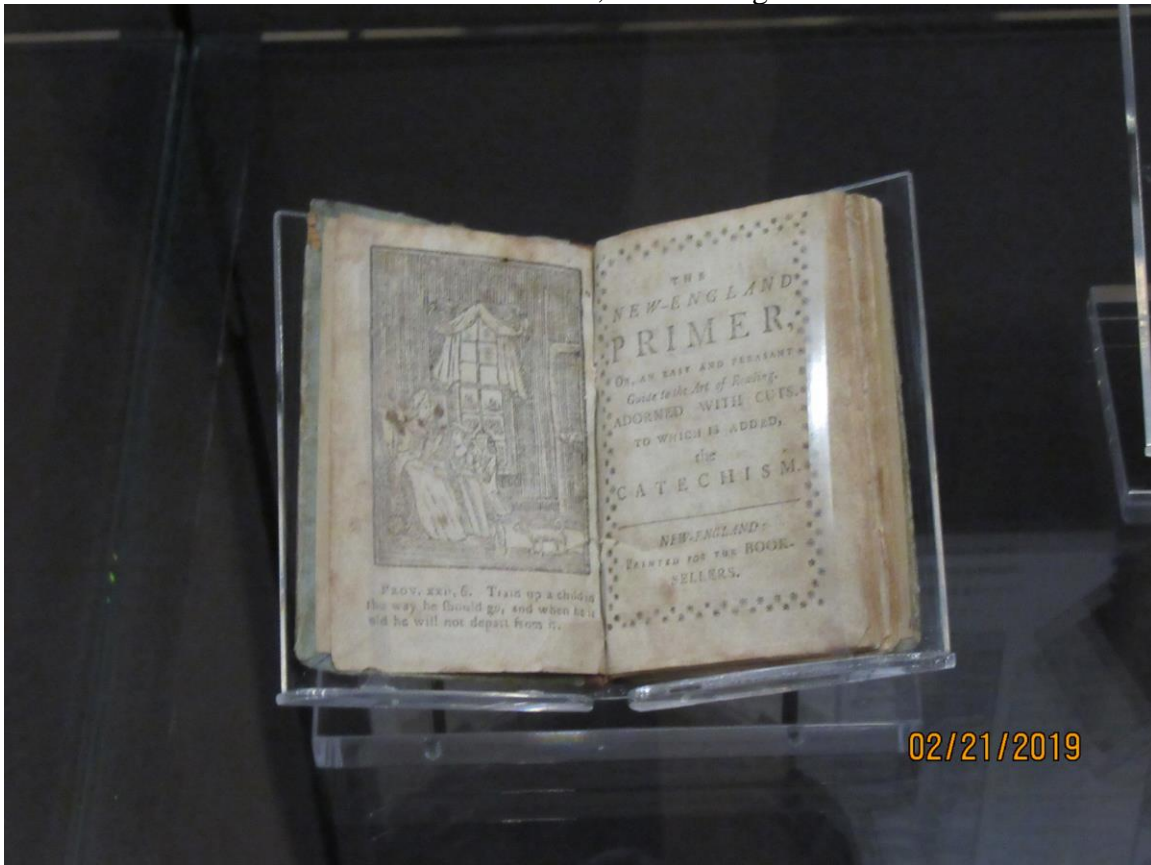 PROV. XXII, 6. Train up a child in
the way he should go, and when he is
old he will not depart from it.
THE
NEW-ENGLAND
PRIMER,
OR, AN EASY AND PLEASANT
Guide to the Art of Reading.
ADORNED WITH CUTS.
TO WHICH IS ADDED,
the
CATECHISM.
NEW-ENGLAND:
PRINTED FOR THE BOOK-
SELLERS.
02/21/2019